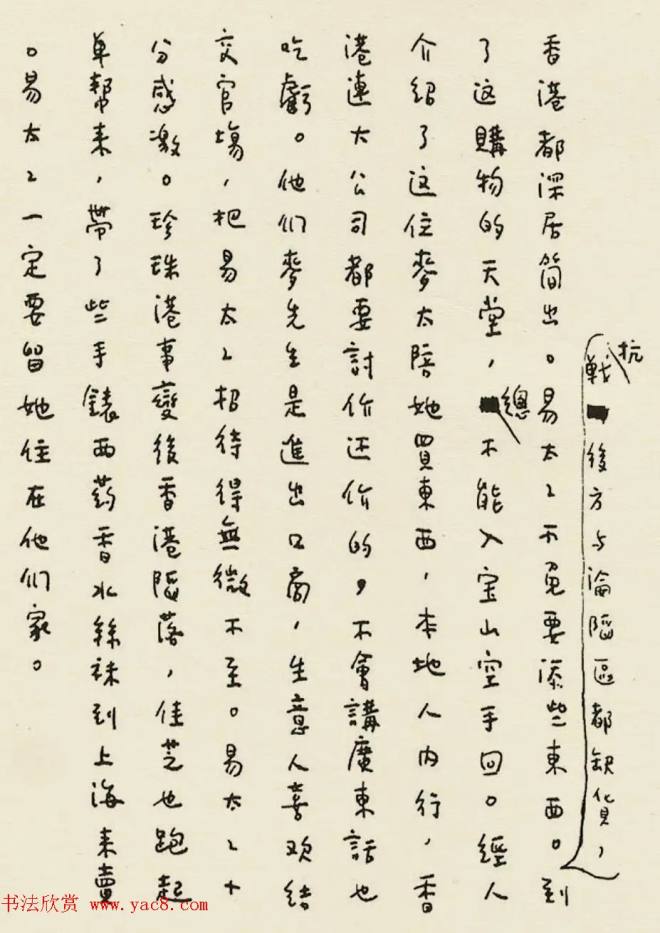 抗戰後方与淪陷區都缺貨，
香港都深居简出。易太〻不免要添些東西。到
了这購物的天堂，總不能入宝山空手回。經人
介绍了这位麥太陪她買東西，本地人内行，香
港連大公司都要討价还价的，不會講廣東話也
吃虧。他们麥先生是進出口商，生意人喜欢结
交官場，把易太〻招待得無微不至。易太〻十
分感激。珍珠港事變後香港陷落，佳芝也跑起
单幫来，帶了些手錶西葯香水絲袜到上海来賣
。易太〻一定要留她住在他们家。
书法欣赏 www.yac8.com